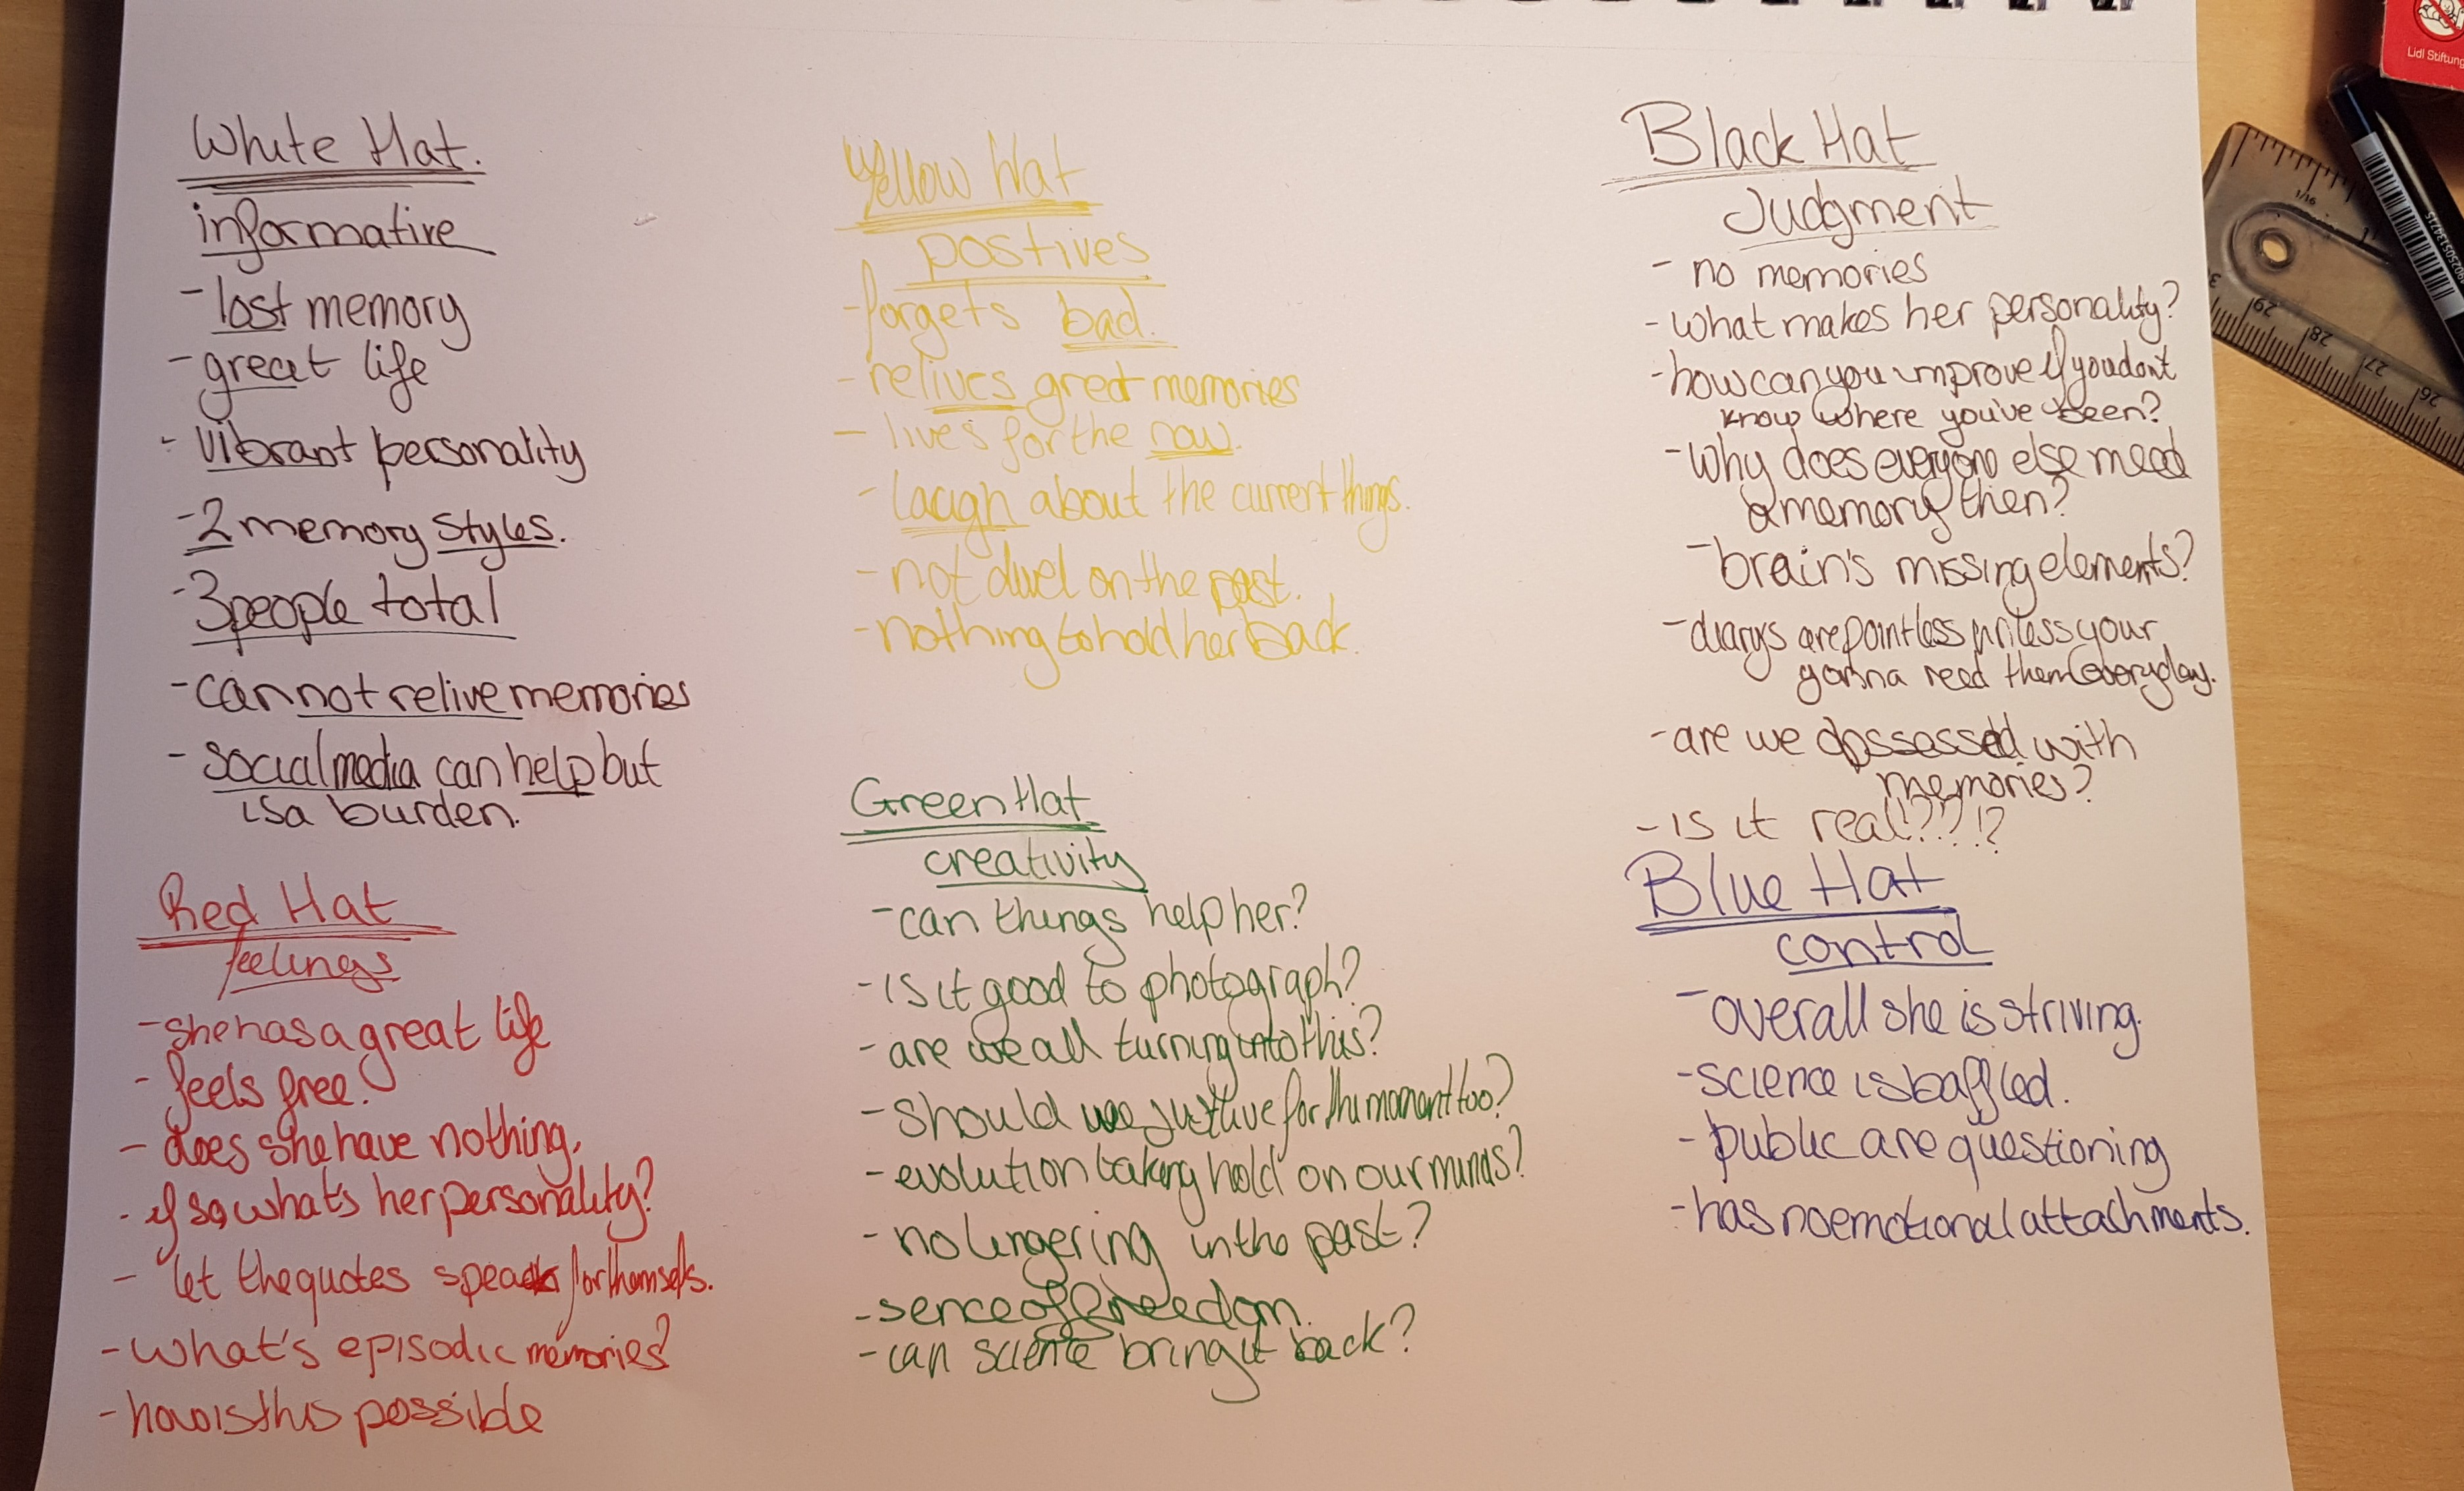 White Hat.
informative
- lost memory
- great life
- vibrant personality
- 2 memory styles.
- 3 people total
- cannot relive memories
- social media can help but
is a burden.
Red Hat
feelings
- she has a great life
- feels free.
- does she have nothing,
- if so what's her personality?
- let the quotes speak for themselfs.
- what's episodic memories?
- how is this possible
Yellow Hat
postives
- forgets bad.
- relives great memories
- lives for the now.
- laugh about the current things.
- not dwel on the past.
- nothing to hold her back.
Green Hat
creativity
- can things help her?
- is it good to photograph?
- are we all turning into this?
- should we just live for the moment too?
- evolution taking hold on our minds?
- no lingering in the past?
- sence of freedom.
- can science bring it back?
Black Hat
Judgment
- no memories
- what makes her personality?
- how can you improve if you dont
know where you've been?
- Why does everyone else need
a memory then?
- brain's missing elements?
- diarys are pointless unless your
gonna read them everyday.
- are we with
memories?
- is it real???!?
Blue Hat
control
- overall she is striving.
- science is baffled.
- public are questioning
- has no emotional attachments.
Lidl Stiftung
1/16
29
28
27
26